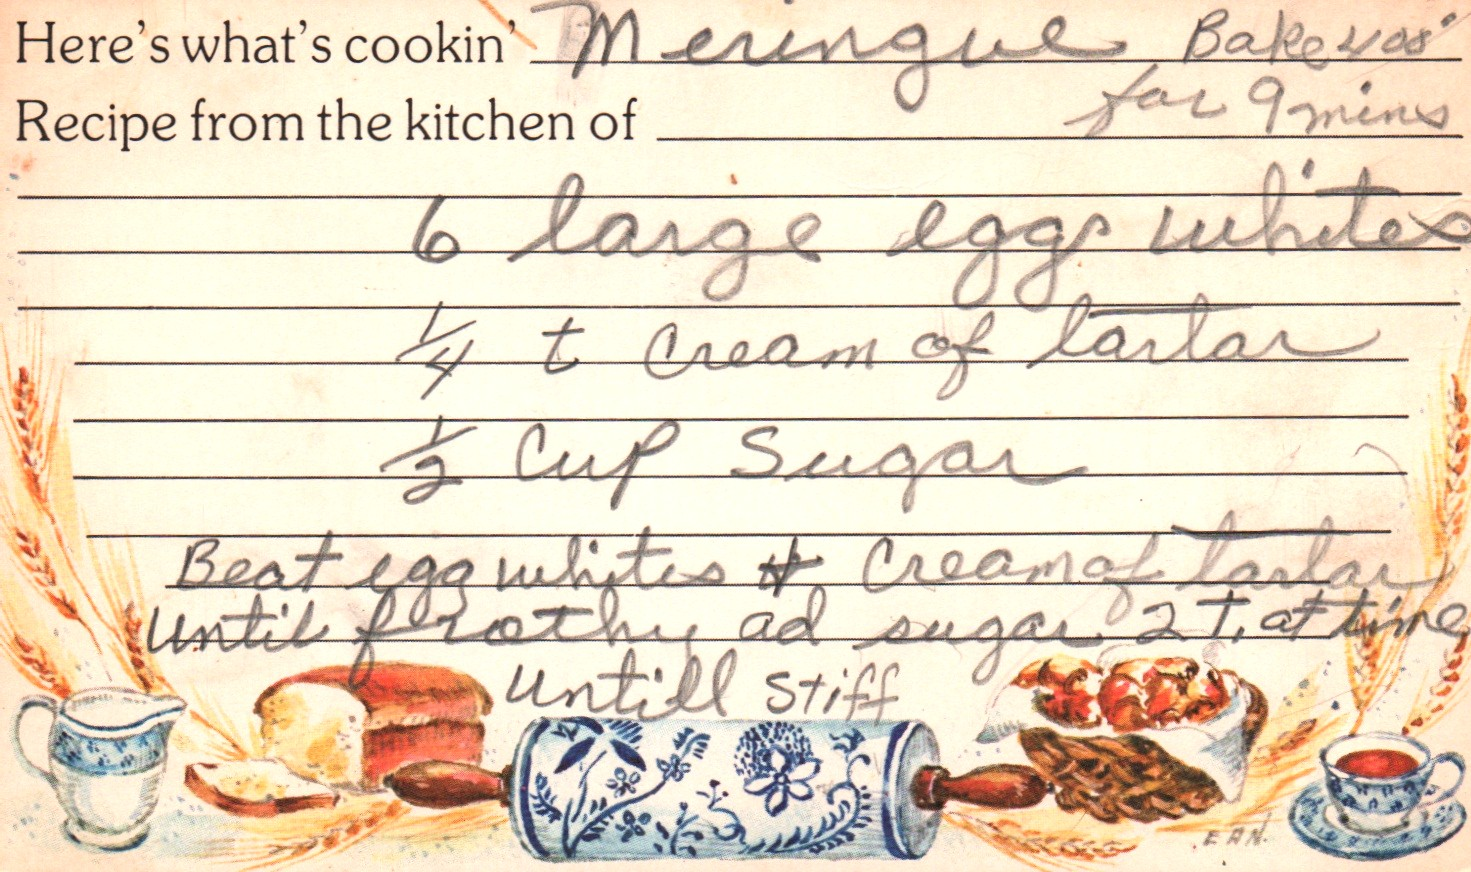 Here's what's cookin' Meringue Bake 400°
for 9 mins
Recipe from the kitchen of
6 large eggs whites
1/4 t cream of tartar
1/2 Cup Sugar
Beat egg whites & Cream of tartar
Until frothy ad sugar 2 T. at time
Untill Stiff
E A N.